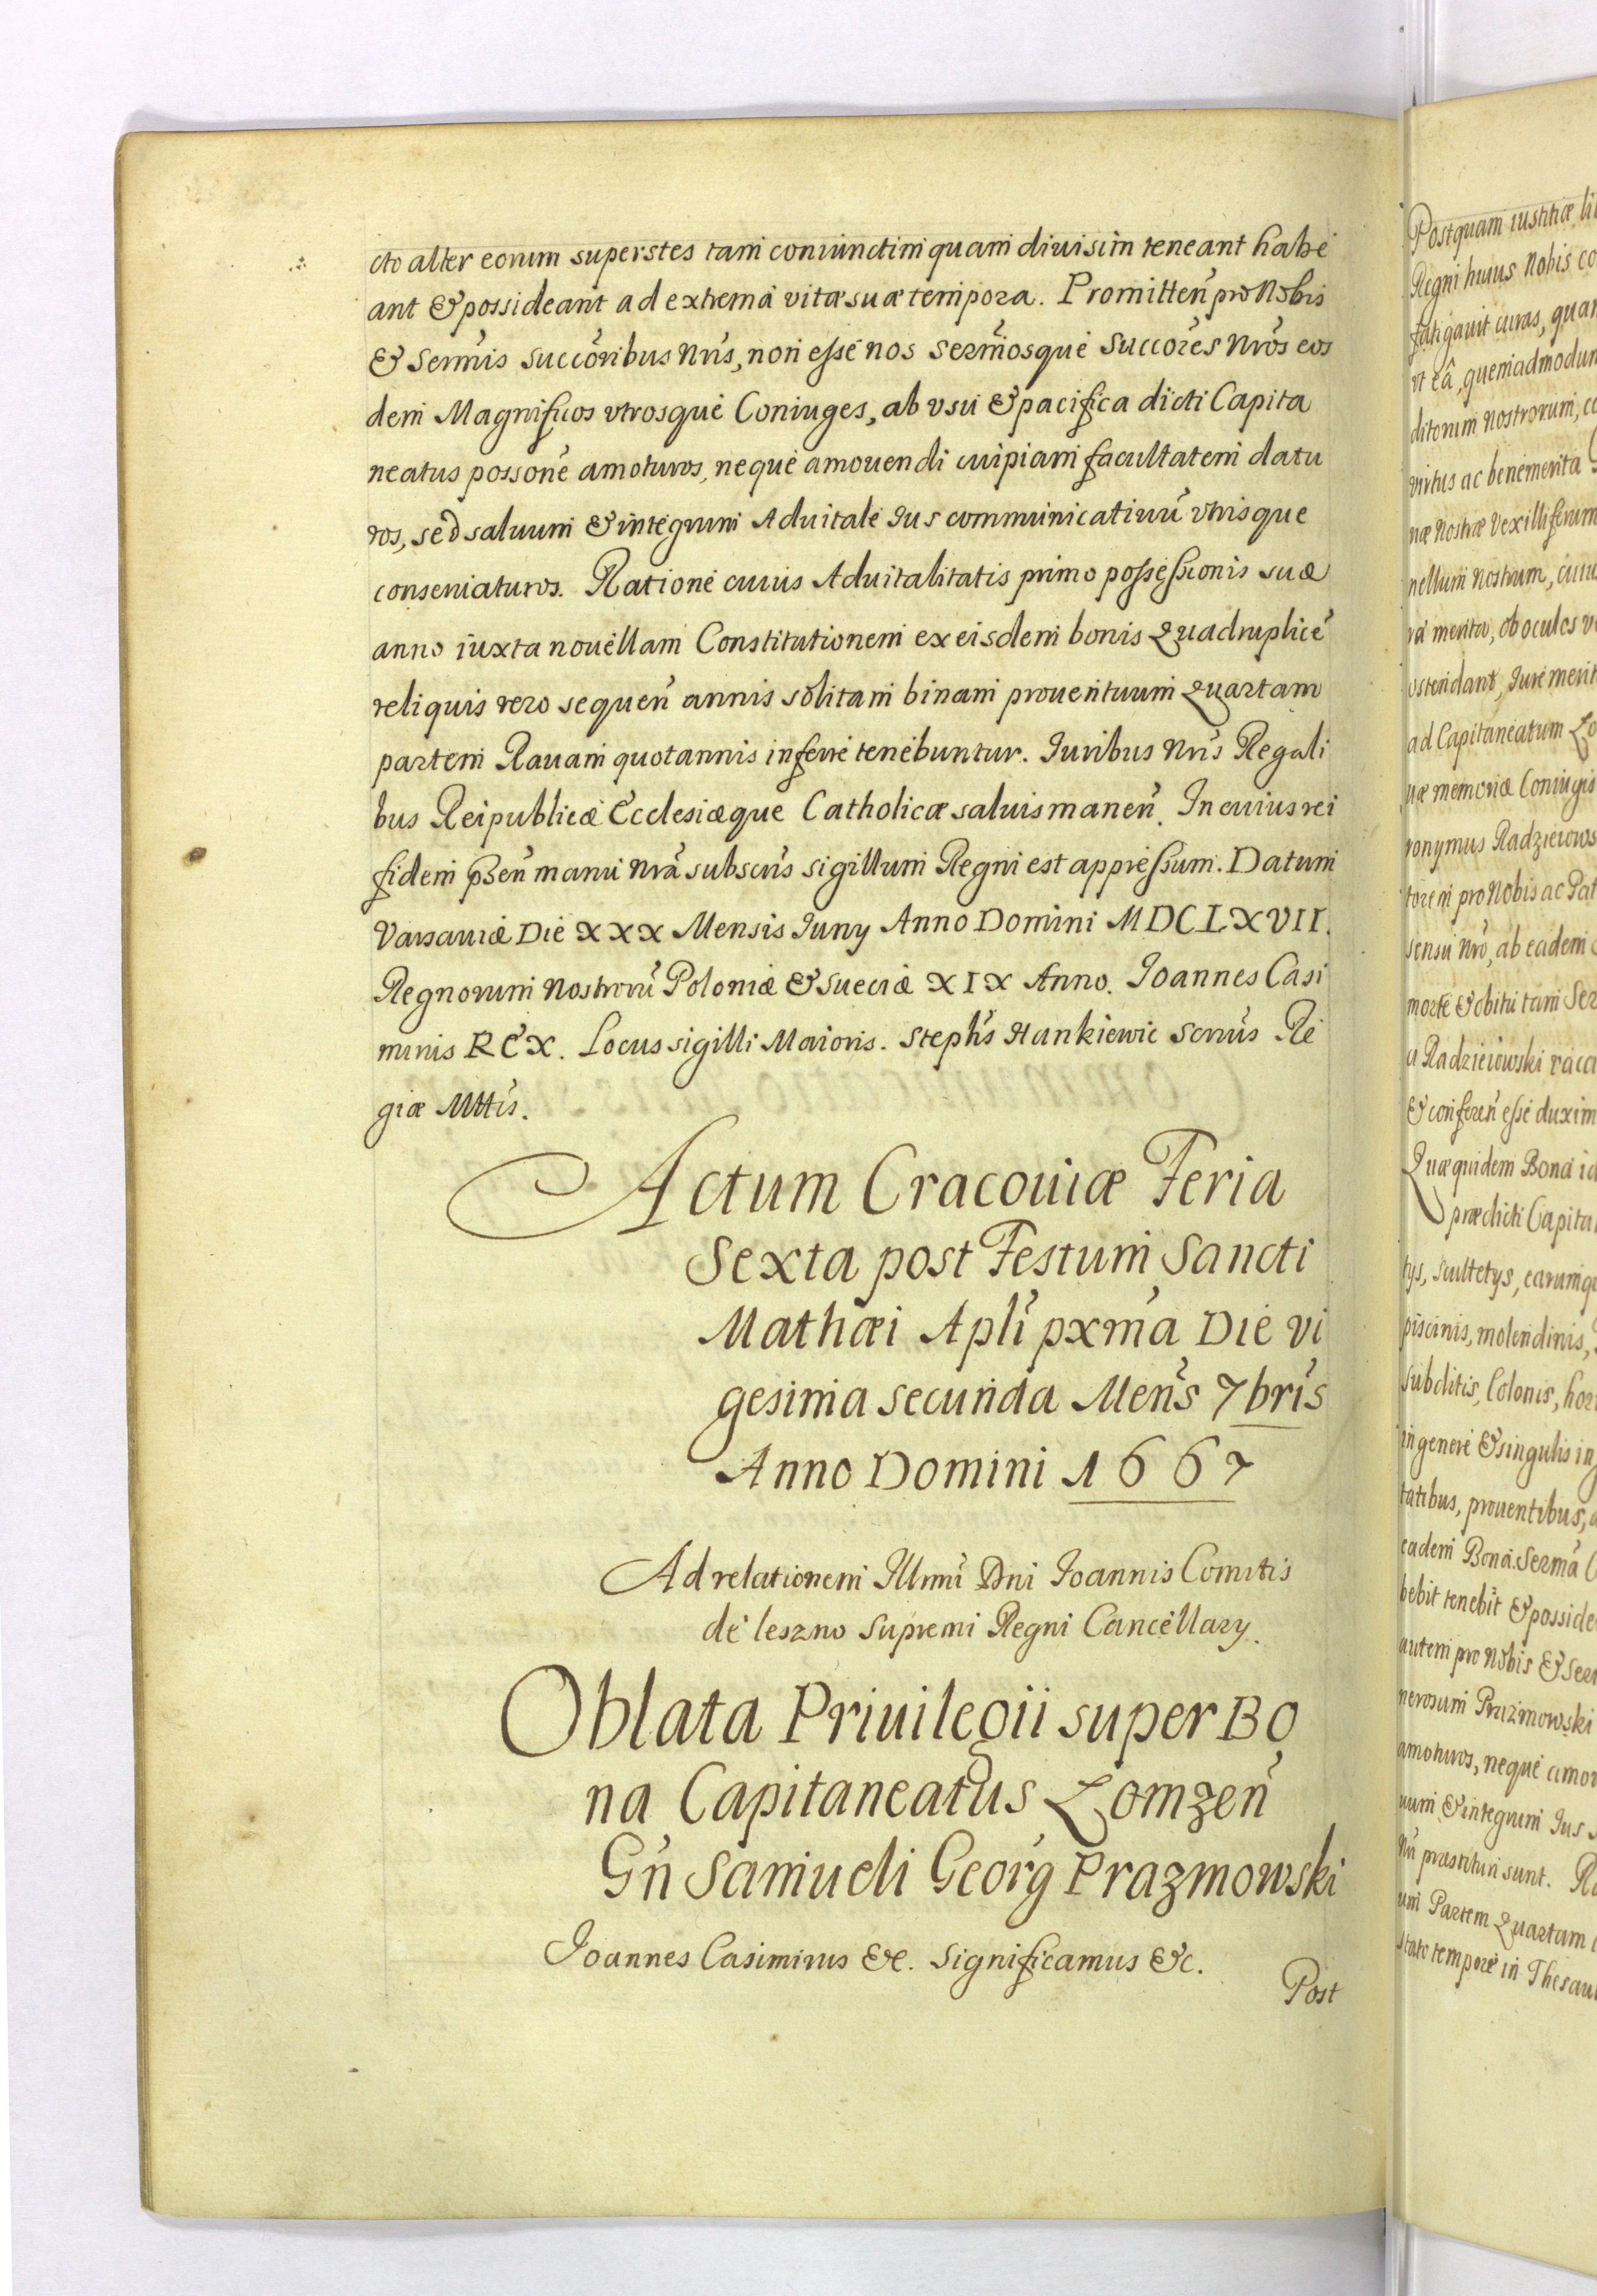 cto alter eorum superstes tam coniunctim quam diuisim teneant habe
ant & possideant ad extrema vitæ suæ tempora. Promitteñ pro Nobis
& Sermis Succoribus Nris, non esse nos Sermosque Succores Nros eos
dem Magnificos vtrosque Coniuges, ab vsu & pacifica dicti Capita
neatus possone amoturos, neque amouendi cuipiam facultatem datu
ros, sed saluum & integrum Aduitale Ius communicatiuũ vtrisque
conseruaturos. Ratione cuius Aduitalitatis primo possessionis suæ
anno iuxta nouellam Constitutionem ex eisdem bonis Quadruplicẽ
reliquis vero sequeñ annis solitam binam prouentuum Quartam
partem Rauam quotannis inferre tenebuntur. Iuribus Nris Regali
bus Reipublicæ Ecclesiæque Catholicæ saluis maneñ. In cuius rei
fidem pñseñ manu nrã subscris sigillum Regni est appressum. Datum
Varsauiæ Die XXX Mensis Iuny Anno Domini MDCLXVII.
Regnorum Nostrorũ Poloniæ & Sueciæ XIX Anno. Ioannes Casi
mirus REX. Locus sigilli Maioris. Stephs Hankiewic Scrius Re
giæ Mttis.
Actum Cracouiæ Feria
Sexta post Festum Sancti
Mathæi Apli pxma Die vi
gesima secunda Mens 7bris
Anno Domini 1667
Ad relationem Illmi Dni Ioannis Comitis
de leszno Supremi Regni Cancellary.
Oblata Priuilegii super Bo
na Capitaneatus Lomzeñ
Gñ Samueli Georg Prazmowski
Ioannes Casimirus &c. Significamus &c.
Post
Postquam iustitiæ
Regni huius Nobis
fatigauit curas,
vt eâ, quemadmodum
ditorum nostrorum,
virtus ac benemerita
næ Nostræ Vexilliferum
nellum nostrum,
merita, ob oculos
ostendant, Iure
ad Capitaneatum
memoriæ Coniugis
ronymus
torem pro Nobis ac
sensu Nro, ab eadem
morte & obitu tam
Radzieiowski
& confereñ esse
Quæquidem Bona
prædicti
scultetys,
piscinis, molendinis,
subditis, Colonis,
in genere & singulis
tatibus, prouentibus,
eadem Bona. Serma
bebit tenebit &
autem pro Nobis &
nerosum Prazmowski
amoturos, neque
uum & integrum Ius
præstituri sunt.
um Partem Quartam
tempore in